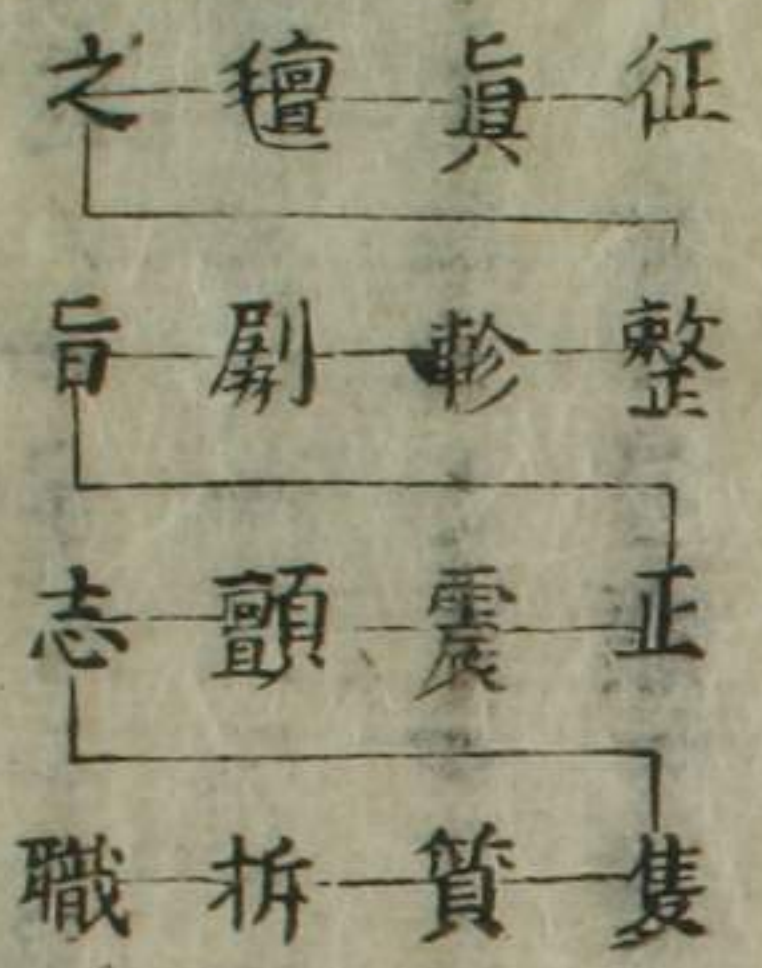 征眞氊之
整軫旨
正震顫志
隻質拆職